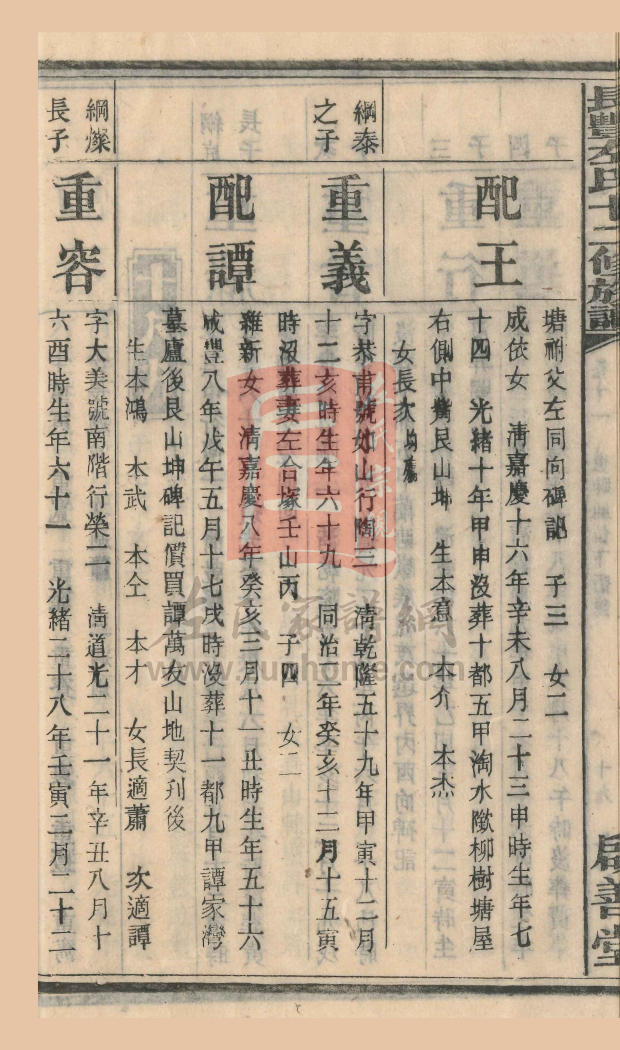 長豐左氏十二修族譜
啟善堂
配王
塘祔父左同向碑記　子三　女二
成依女　清嘉慶十六年辛未八月二十三申時生年七
十四　光緒十年甲申沒葬十都五甲淘水墩柳樹塘屋
右側中嘴艮山坤　生本意　本介　本杰
女長次均殤
綱泰
之子
重義
字恭甫號如山行陶三　清乾隆五十九年甲寅十二月
十二亥時生年六十九　同治二年癸亥十二月十五寅
時沒葬妻左合塚壬山丙　子四　女二
配譚
雜新女　清嘉慶八年癸亥三月十一丑時生年五十六
咸豐八年戊午五月十七戌時沒葬十一都九甲譚家灣
墓廬後艮山坤碑記價買譚萬友山地契刋後
生本鴻　本武　本仝　本才　女長適蕭　次適譚
綱燦
長子
重容
字大美號南階行榮二　清道光二十一年辛丑八月十
六酉時生年六十一　光緒二十八年壬寅二月二十二
左氏家譜網
www.zuojiapu.com